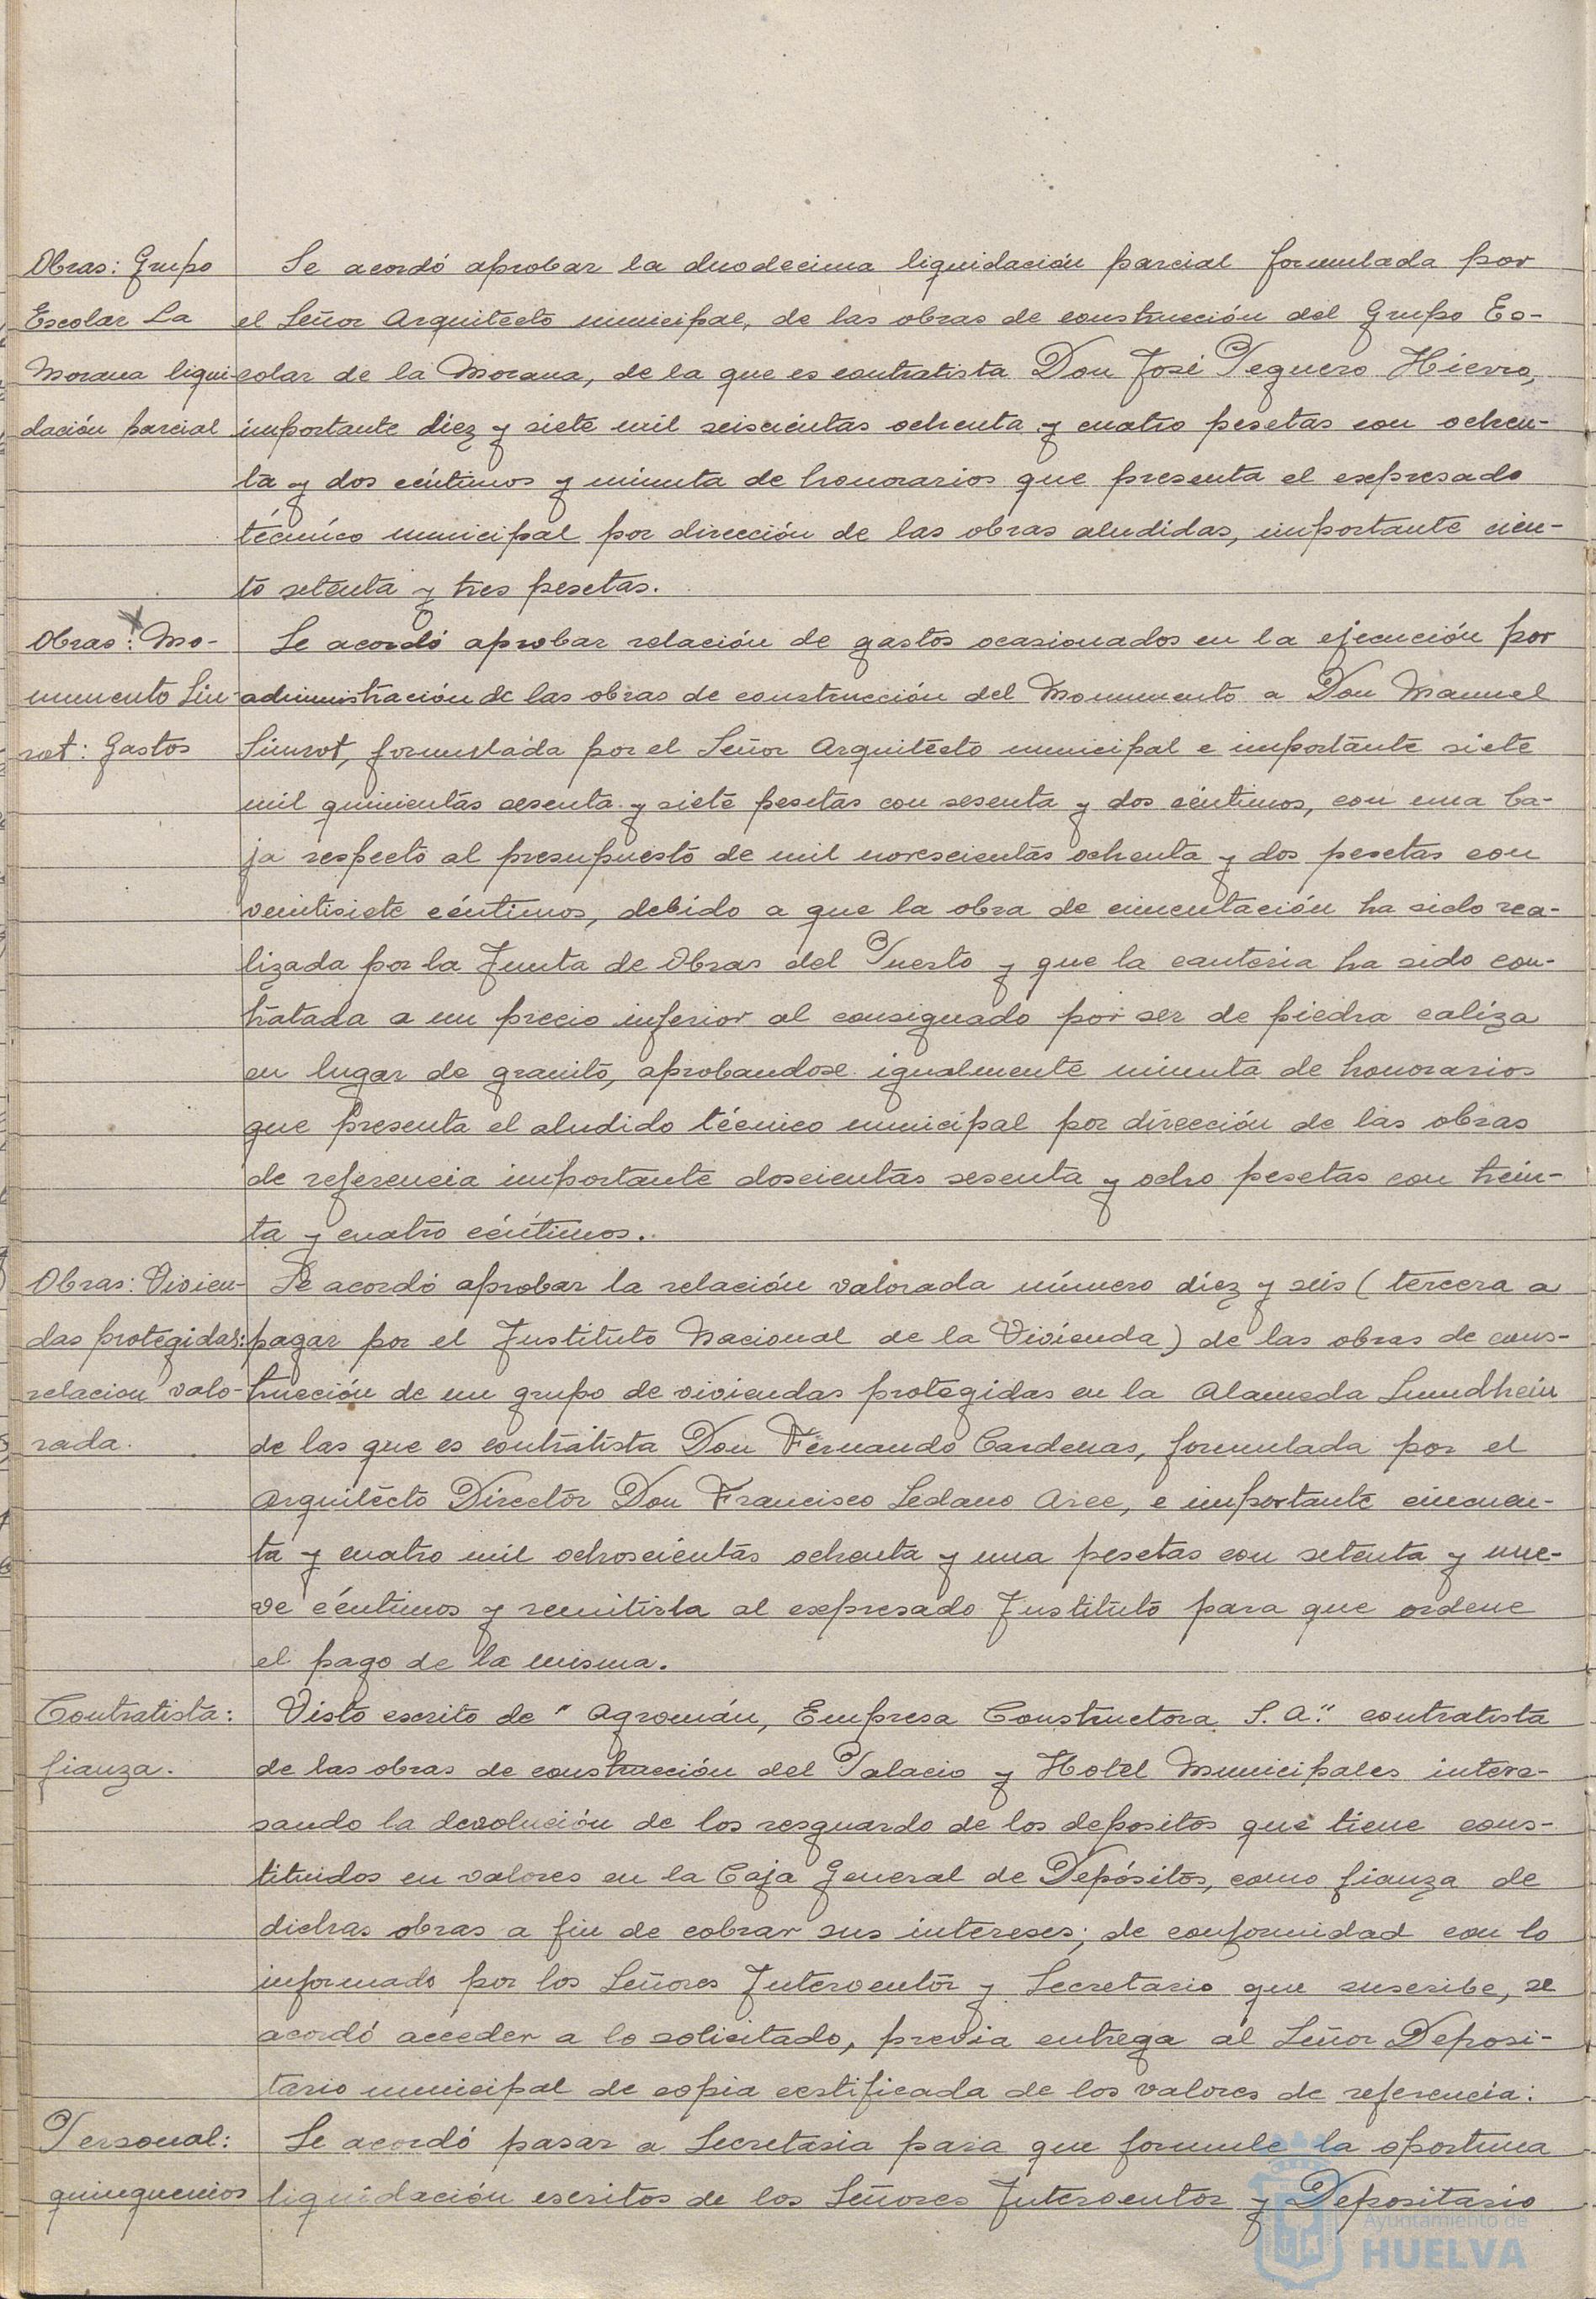 Obras: Grupo
Escolar La
Morana liqui-
dación parcial
Se acordó aprobar la duodecima liquidación parcial formulada por
el Señor Arquitecto municipal, de las obras de construcción del Grupo Es-
colar de la Morana, de la que es contratista Don José Peguero Hierro,
importante diez y siete mil seiscientas ochenta y cuatro pesetas con ochen-
ta y dos céntimos y minuta de honorarios que presenta el expresado
técnico municipal por dirección de las obras aludidas, importante cien-
to setenta y tres pesetas.
Obras: Mo-
numento Siu-
rot: Gastos
Se acordó aprobar relación de gastos ocasionados en la ejecución por
administración de las obras de construcción del Monumento a Don Manuel
Siurot, formulada por el Señor Arquitecto municipal e importante siete
mil quinientas sesenta y siete pesetas con sesenta y dos céntimos, con una ba-
ja respecto al presupuesto de mil novescientas ochenta y dos pesetas con
veintisiete céntimos, debido a que la obra de cimentación ha sido rea-
lizada por la Junta de Obras del Puerto y que la canteria ha sido con-
tratada a un precio inferior al consignado por ser de piedra caliza
en lugar de granito, aprobandose igualmente minuta de honorarios
que presenta el aludido técnico municipal por dirección de las obras
de referencia importante doscientas sesenta y ocho pesetas con trein-
ta y cuatro céntimos.
Obras: Vivien-
das protegidas:
relacion valo-
rada.
Se acordó aprobar la relación valorada número diez y seis (tercera a
pagar por el Instituto Nacional de la Vivienda) de las obras de cons-
trucción de un grupo de viviendas protegidas en la Alameda Sundhein
de las que es contratista Don Fernando Cardenas, formulada por el
Arquitecto Director Don Francisco Sedano Arce, e importante cincuen-
ta y cuatro mil ochoscientas ochenta y una pesetas con setenta y nue-
ve céntimos y remitirla al expresado Instituto para que ordene
el pago de la misma.
Contratista:
fianza.
Visto escrito de "Agromán, Empresa Constructora S.A." contratista
de las obras de construcción del Palacio y Hotel Municipales intere-
sando la devolución de los resguardo de los depositos que tiene cons-
tituidos en valores en la Caja General de Depósitos, como fianza de
dichas obras a fin de cobrar sus intereses; de conformidad con lo
informado por los Señores Interventor y Secretario que suscribe, se
acordó acceder a lo solicitado, previa entrega al Señor Deposi-
tario municipal de copia certificada de los valores de referencia.
Personal:
quinquenios
Se acordó pasar a Secretaria para que formule la oportuna
liquidación escritos de los Señores Interventor y Depositario
Ayuntamiento de
HUELVA